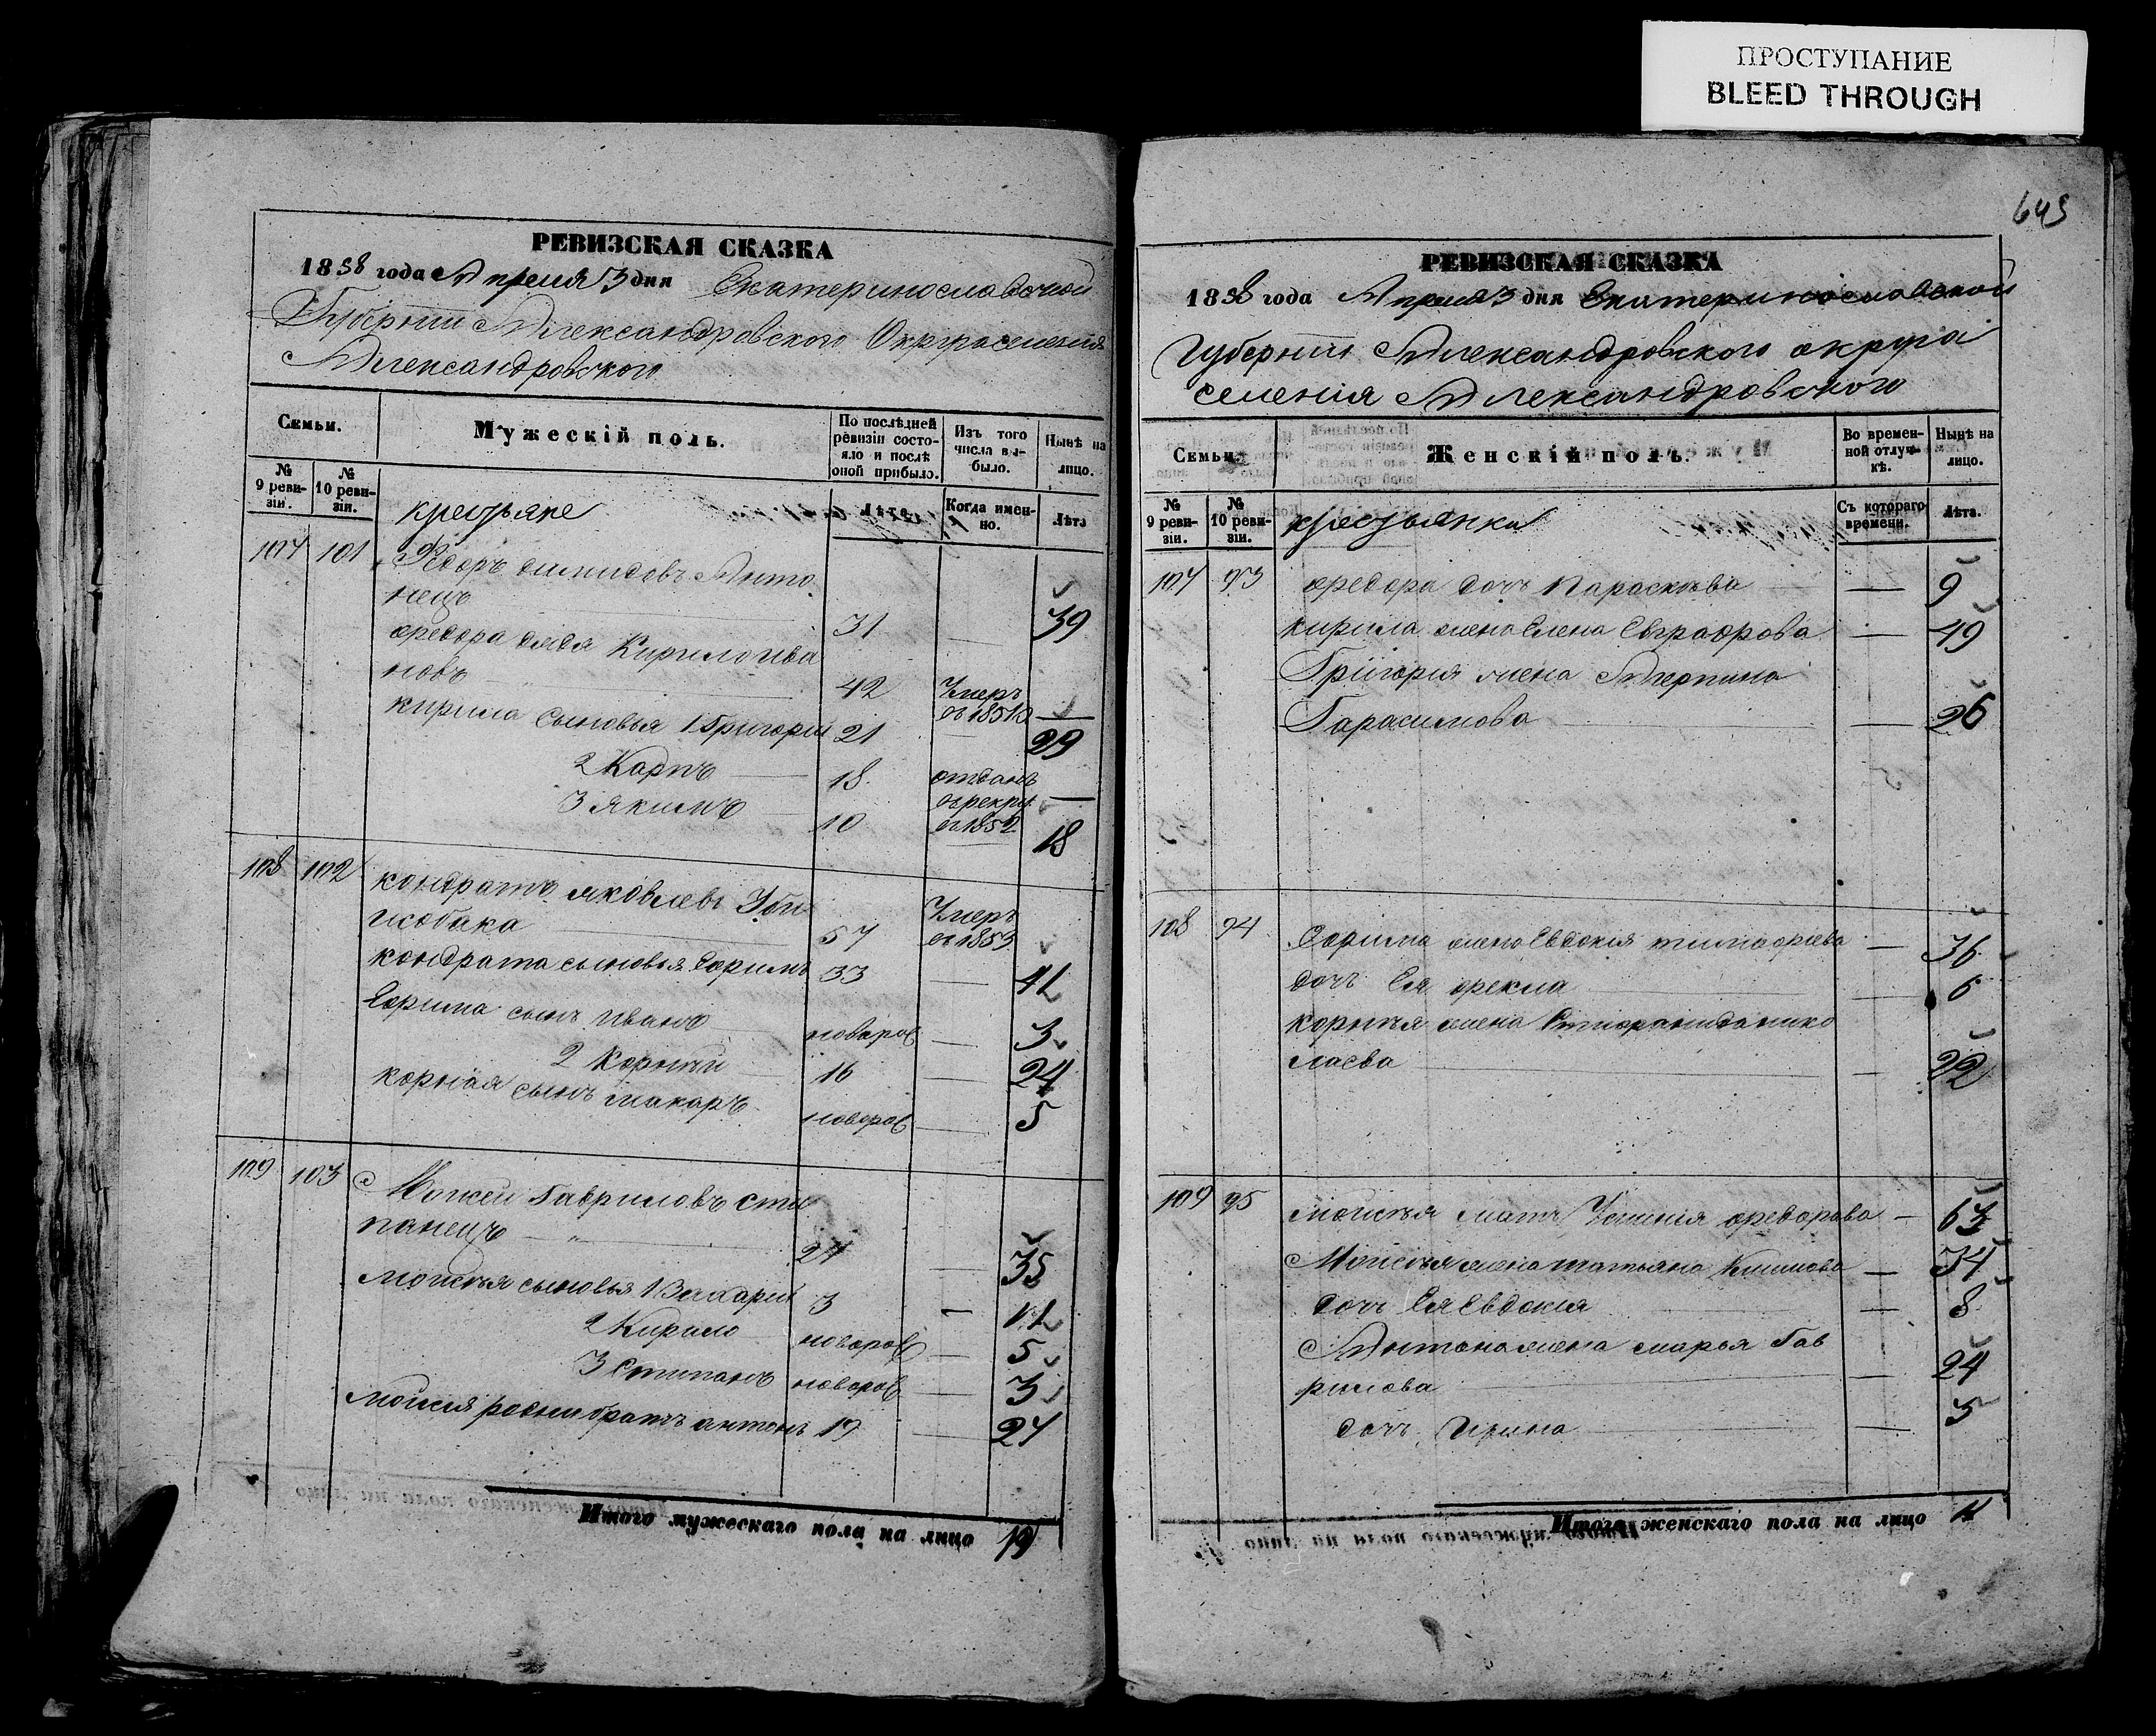 ПРОСТУПАНИЕ
BLEED THROUGH
РЕВИЗСКАЯ СКАЗКА
1858 года Апреля 3 дня Екатеринославской
Губернии Александровского Округа селения
Александровского
Семьи.
Мужескій полъ.
По послѣдней ревизіи состояло и послѣ оной прибыло.
Изъ того числа выбыло.
Нынѣ на лицо.
№ 9 ревизіи.
№ 10 ревизіи.
крестьяне
Когда именно.
Лѣта
107 101 Федоръ Анто
нецъ 31 — 39
Федора дядя Кирило Ива
новъ 42 Умеръ въ 1851 —
Кирила сыновья 1 Григорій 21 29
2 Карпъ 18 отданъ въ рекру въ 1852 —
3 Якимъ 10 18
108 102 Кондратъ Яковлевъ Уби
собака 57 Умеръ въ 1853
Кондрата сыновья Ефимъ 33 — 41
Ефима сынъ Иванъ новорож — 3
2 Корній 16 — 24
Корнія сынъ Макаръ новорож — 5
109 103 Мойсей Гавриловъ Сти
панецъ 27 — 35
Мойсѣя сыновья 1 Захарій 3 — 11
2 Кирило новорож — 5
3 Стипанъ новорож — 3
Мойсія родни братъ Антонъ 19 — 27
Итого мужескаго пола на лицо 10
645
РЕВИЗСКАЯ СКАЗКА
1858 года Апреля 3 дня Екатеринославской
Губерніи Александровского округа
селенія Александровского
Семьи.
Женскій полъ.
Во временной отлучкѣ.
Нынѣ на лицо.
№ 9 ревизіи.
№ 10 ревизіи.
крестьянки
Съ котораго времени.
Лѣта.
107 93 Федора дочь Параскѣва — 9
Кирила жена Елена Евграфова — 49
Григорія жена
Гарасимова — 26
108 94 Ефима жена Евдокія Тимафіева — 36
дочь Ея Фекла — 6
Корнѣя жена Стиоранида Нико
лаева — 22
109 95 Мойсѣя мать Устинія Федорова — 63
Мойсѣя жена Татьяна Климова — 34
дочь Ея Евдокія — 8
Антона жена Марья Гав
рилова — 24
дочь Ирина — 5
Итого женскаго пола на лицо 11